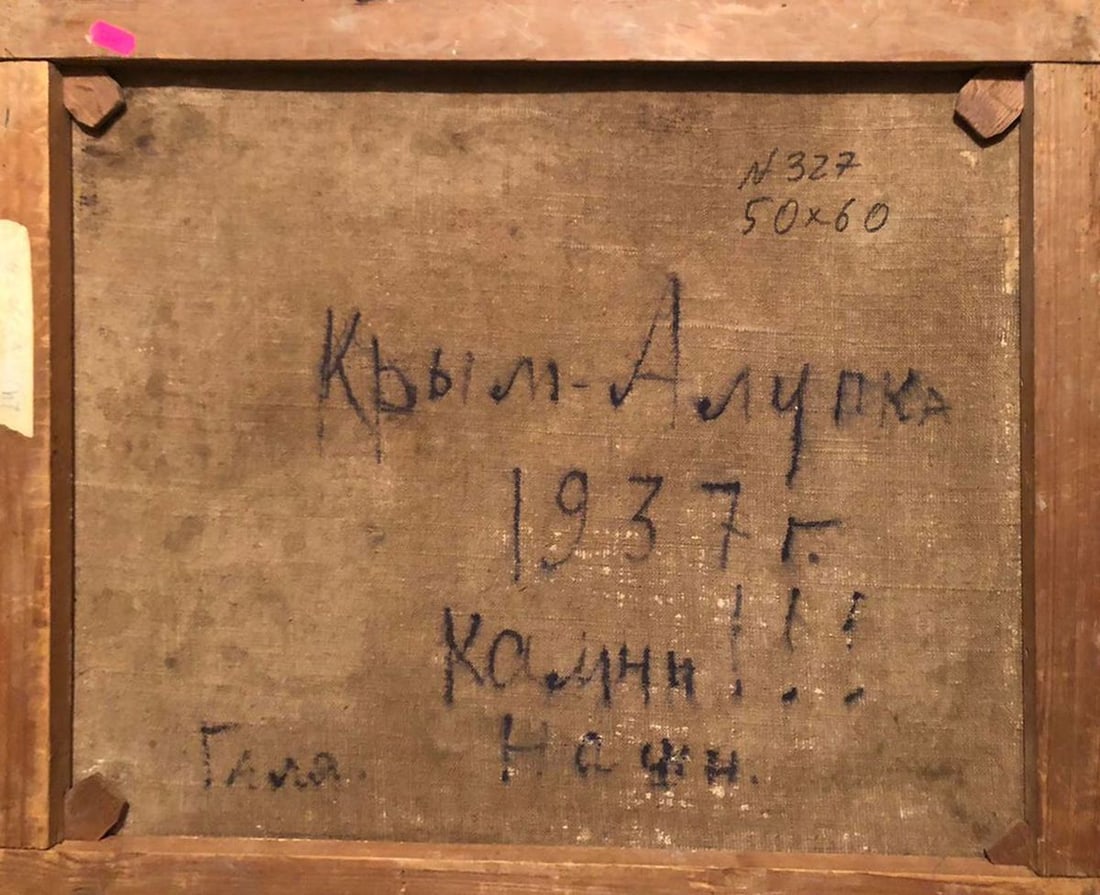 N 327
50x60
Крым-Алупка
1937 г.
Камни!!!
Галя. Наши.